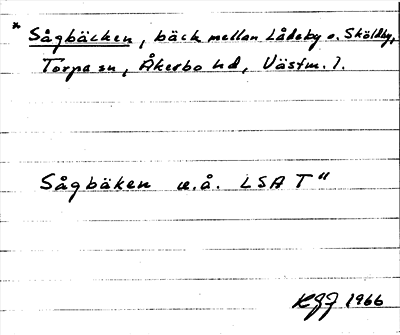 * Sågbäcken, bäck mellan Lådeby o. Sköldby,
Torpa sn, Åkerbo hd, Västm. l.
Sågbäken u.å. LSA T"
1966